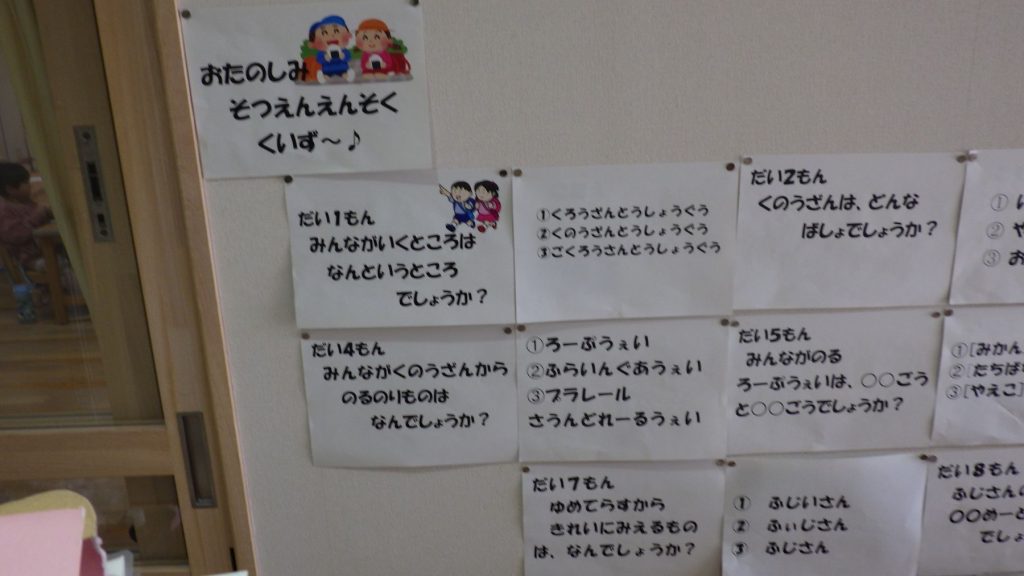 おたのしみ
そつえんえんそく
くいず～♪
だい1もん
みんながいくところは
なんというところ
でしょうか？
①くろうざんとうしょうぐう
②くのうざんとうしょうぐう
③ごくろうさんとうしょうぐう
だい2もん
くのうざんは、どんな
ばしょでしょうか？
①
② や
③ お
だい4もん
みんながくのうざんから
のるのりものは
なんでしょうか？
①ろーぷうぇい
②ふらいんぐあうぇい
③プラレール
さうんどれーるうぇい
だい5もん
みんながのる
ろーぷうぇいは、○○ごう
と○○ごうでしょうか？
①[みかん
②[たちば
③[やえこ]
だい7もん
ゆめてらすから
きれいにみえるもの
は、なんでしょうか？
① ふじいさん
② ふぃじさん
③ ふじさん
だい8もん
ふじさんの
○○めーと
でしょ